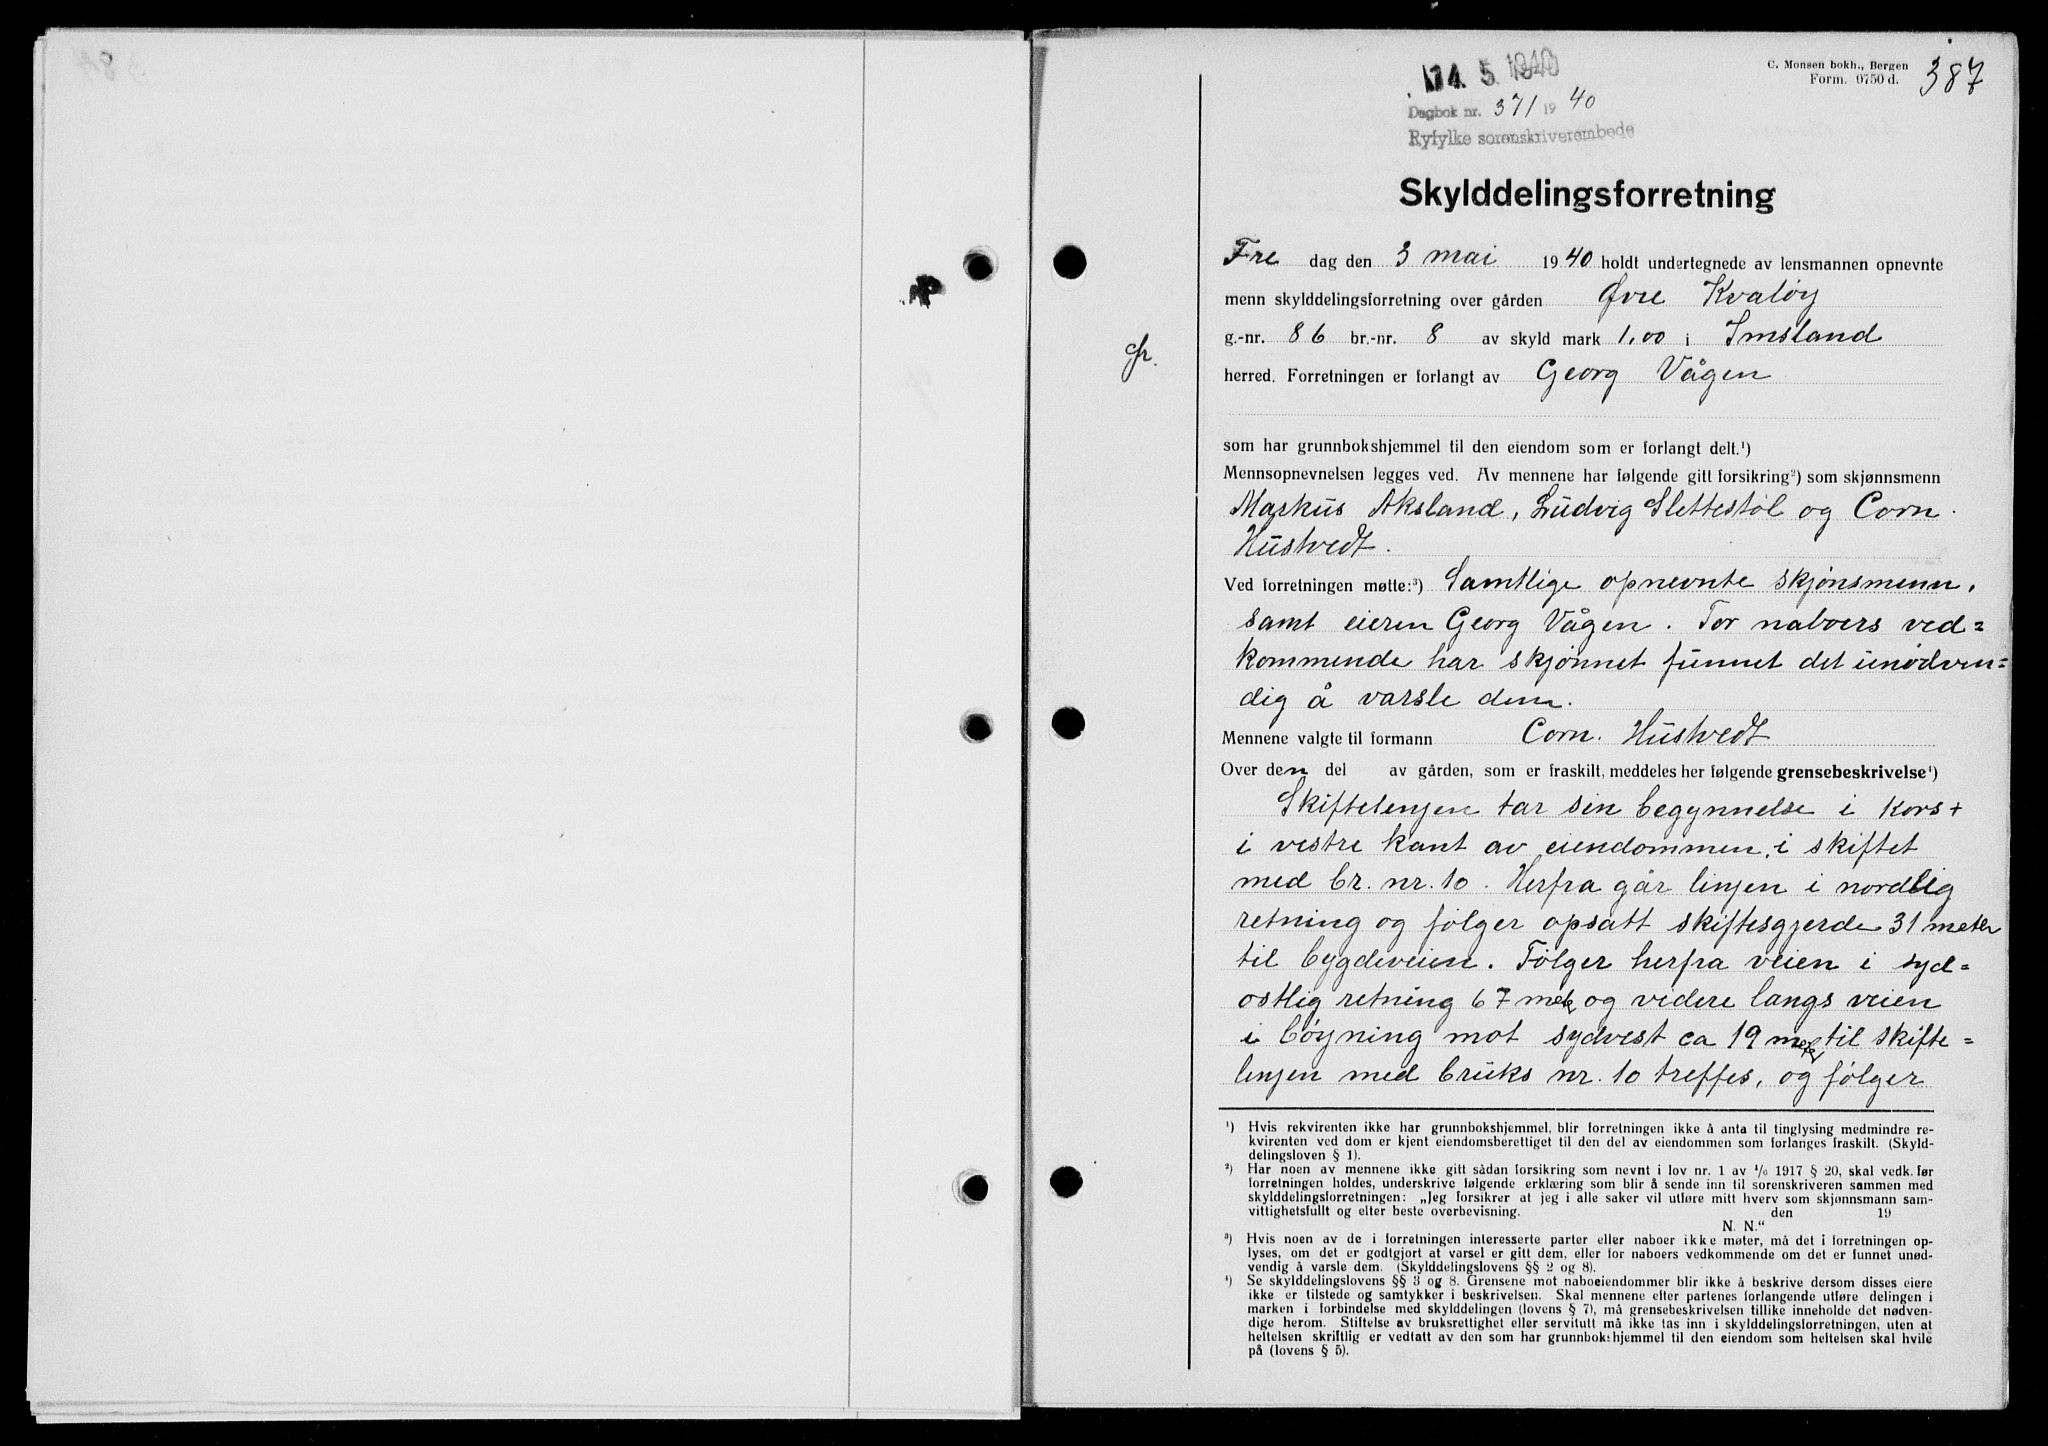 C. Monsen bokh., Bergen
Form. 0750 d.
387
5. 1940
Dagbok nr. 371 1940
Ryfylke sorenskriverembede
Skylddelingsforretning
Fre dag den 3 mai 1940 holdt undertegnede av lensmannen opnevnte
menn skylddelingsforretning over gården Øvre Kvaløy
g.-nr. 86 br.-nr. 8 av skyld mark 1,00 i Imsland
herred. Forretningen er forlangt av Georg Vågen
som har grunnbokshjemmel til den eiendom som er forlangt delt.¹)
Mennsopnevnelsen legges ved. Av mennene har følgende gitt forsikring²) som skjønnsmenn
Markus Aksland, Ludvig Slettestøl og Corn.
Hustvedt.
Ved forretningen møtte:³) Samtlige opnevnte skjønsmenn,
samt eieren Georg Vågen. For naboers ved=
kommende har skjønnet funnet det unødven=
dig å varsle dem.
Mennene valgte til formann Corn. Hustvedt
Over den del av gården, som er fraskilt, meddeles her følgende grensebeskrivelse⁴)
Skiftelenjen tar sin begynnelse i kors +
i vestre kant av eiendommen, i skiftet
med br. nr. 10. Herfra går linjen i nordlig
retning og følger opsatt skiftesgjerde 31 meter
til bygdeveien. Følger herfra veien i syd=
ostlig retning 67 meter og videre langs veien
i bøyning mot sydvest ca 19 meter til skifte=
linjen med bruks nr. 10 treffes, og følger
¹) Hvis rekvirenten ikke har grunnbokshjemmel, blir forretningen ikke å anta til tinglysing medmindre re-
kvirenten ved dom er kjent eiendomsberettiget til den del av eiendommen som forlanges fraskilt. (Skyld-
delingsloven § 1).
²) Har noen av mennene ikke gitt sådan forsikring som nevnt i lov nr. 1 av 1/6 1917 § 20, skal vedk. før
forretningen holdes, underskrive følgende erklæring som blir å sende inn til sorenskriveren sammen med
skylddelingsforretningen: „Jeg forsikrer at jeg i alle saker vil utføre mitt hverv som skjønnsmann sam-
vittighetsfullt og efter beste overbevisning. den 19
N. N.“
³) Hvis noen av de i forretningen interesserte parter eller naboer ikke møter, må det i forretningen op-
lyses, om det er godtgjort at varsel er gitt dem, eller for naboers vedkommende om det er funnet unød-
vendig å varsle dem. (Skylddelingslovens §§ 2 og 8).
⁴) Se skylddelingslovens §§ 3 og 8. Grensene mot naboeiendommer blir ikke å beskrive dersom disses eiere
ikke er tilstede og samtykker i beskrivelsen. Skal mennene efter partenes forlangende utføre delingen i
marken i forbindelse med skylddelingen (lovens § 7), må grensebeskrivelsen tillike inneholde det nødven-
dige herom. Stiftelse av bruksrettighet eller servitutt må ikke tas inn i skylddelingsforretningen, uten at
heftelsen skriftlig er vedtatt av den som har grunnbokshjemmel til den eiendom som heftelsen skal hvile
på (lovens § 5).